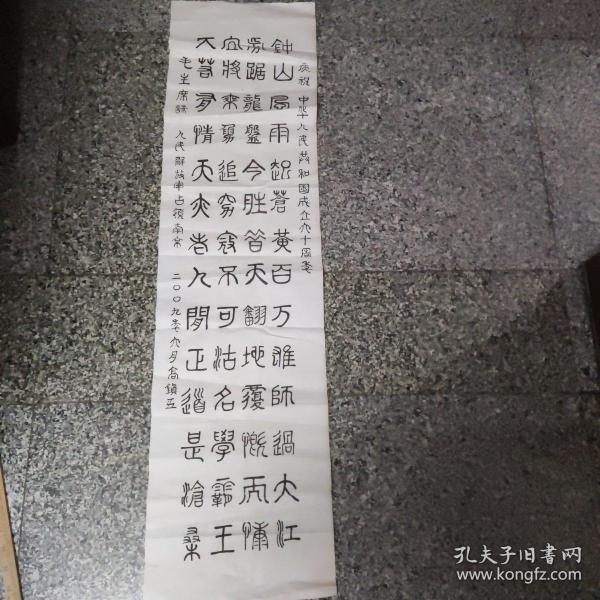 庆祝 中华人民共和国成立六十周年
钟山風雨起蒼黃百万雄師過大江
虎踞龍盤今胜昔天翻地覆慨而慷
宜將乘勇追穷寇不可沽名學霸王
天若有情天亦老人間正道是滄桑
毛主席詩 人民解放軍占領南京 二〇〇九年六月 高鎮五
孔夫子旧書网
www.kongfz.com